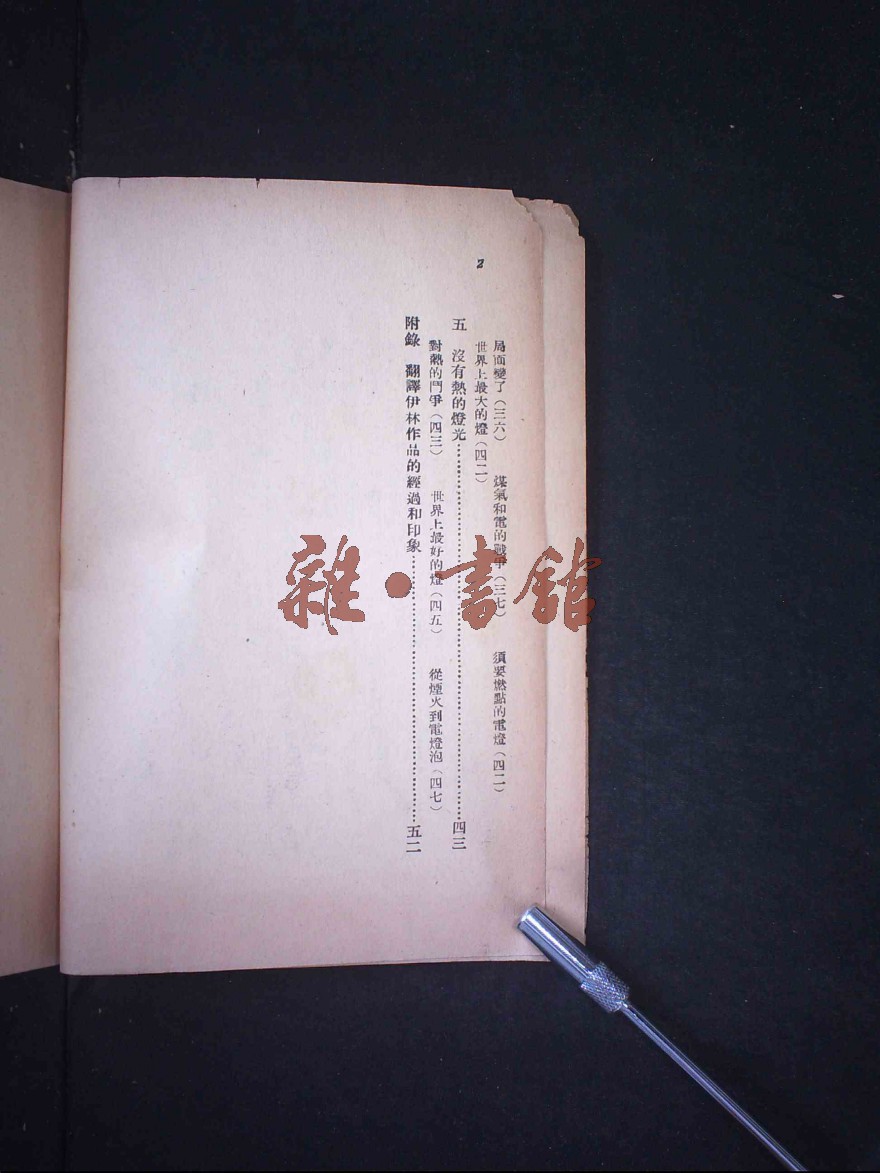 2
局面變了（三六）　煤氣和電的戰爭（三七）　須要燃點的電燈（四二）
世界上最大的燈（四二）
五　沒有熱的燈光……………………四三
對熱的鬥爭（四三）　世界上最好的燈（四五）　從煙火到電燈泡（四七）
附錄　翻譯伊林作品的經過和印象……………………五二
雜·書館